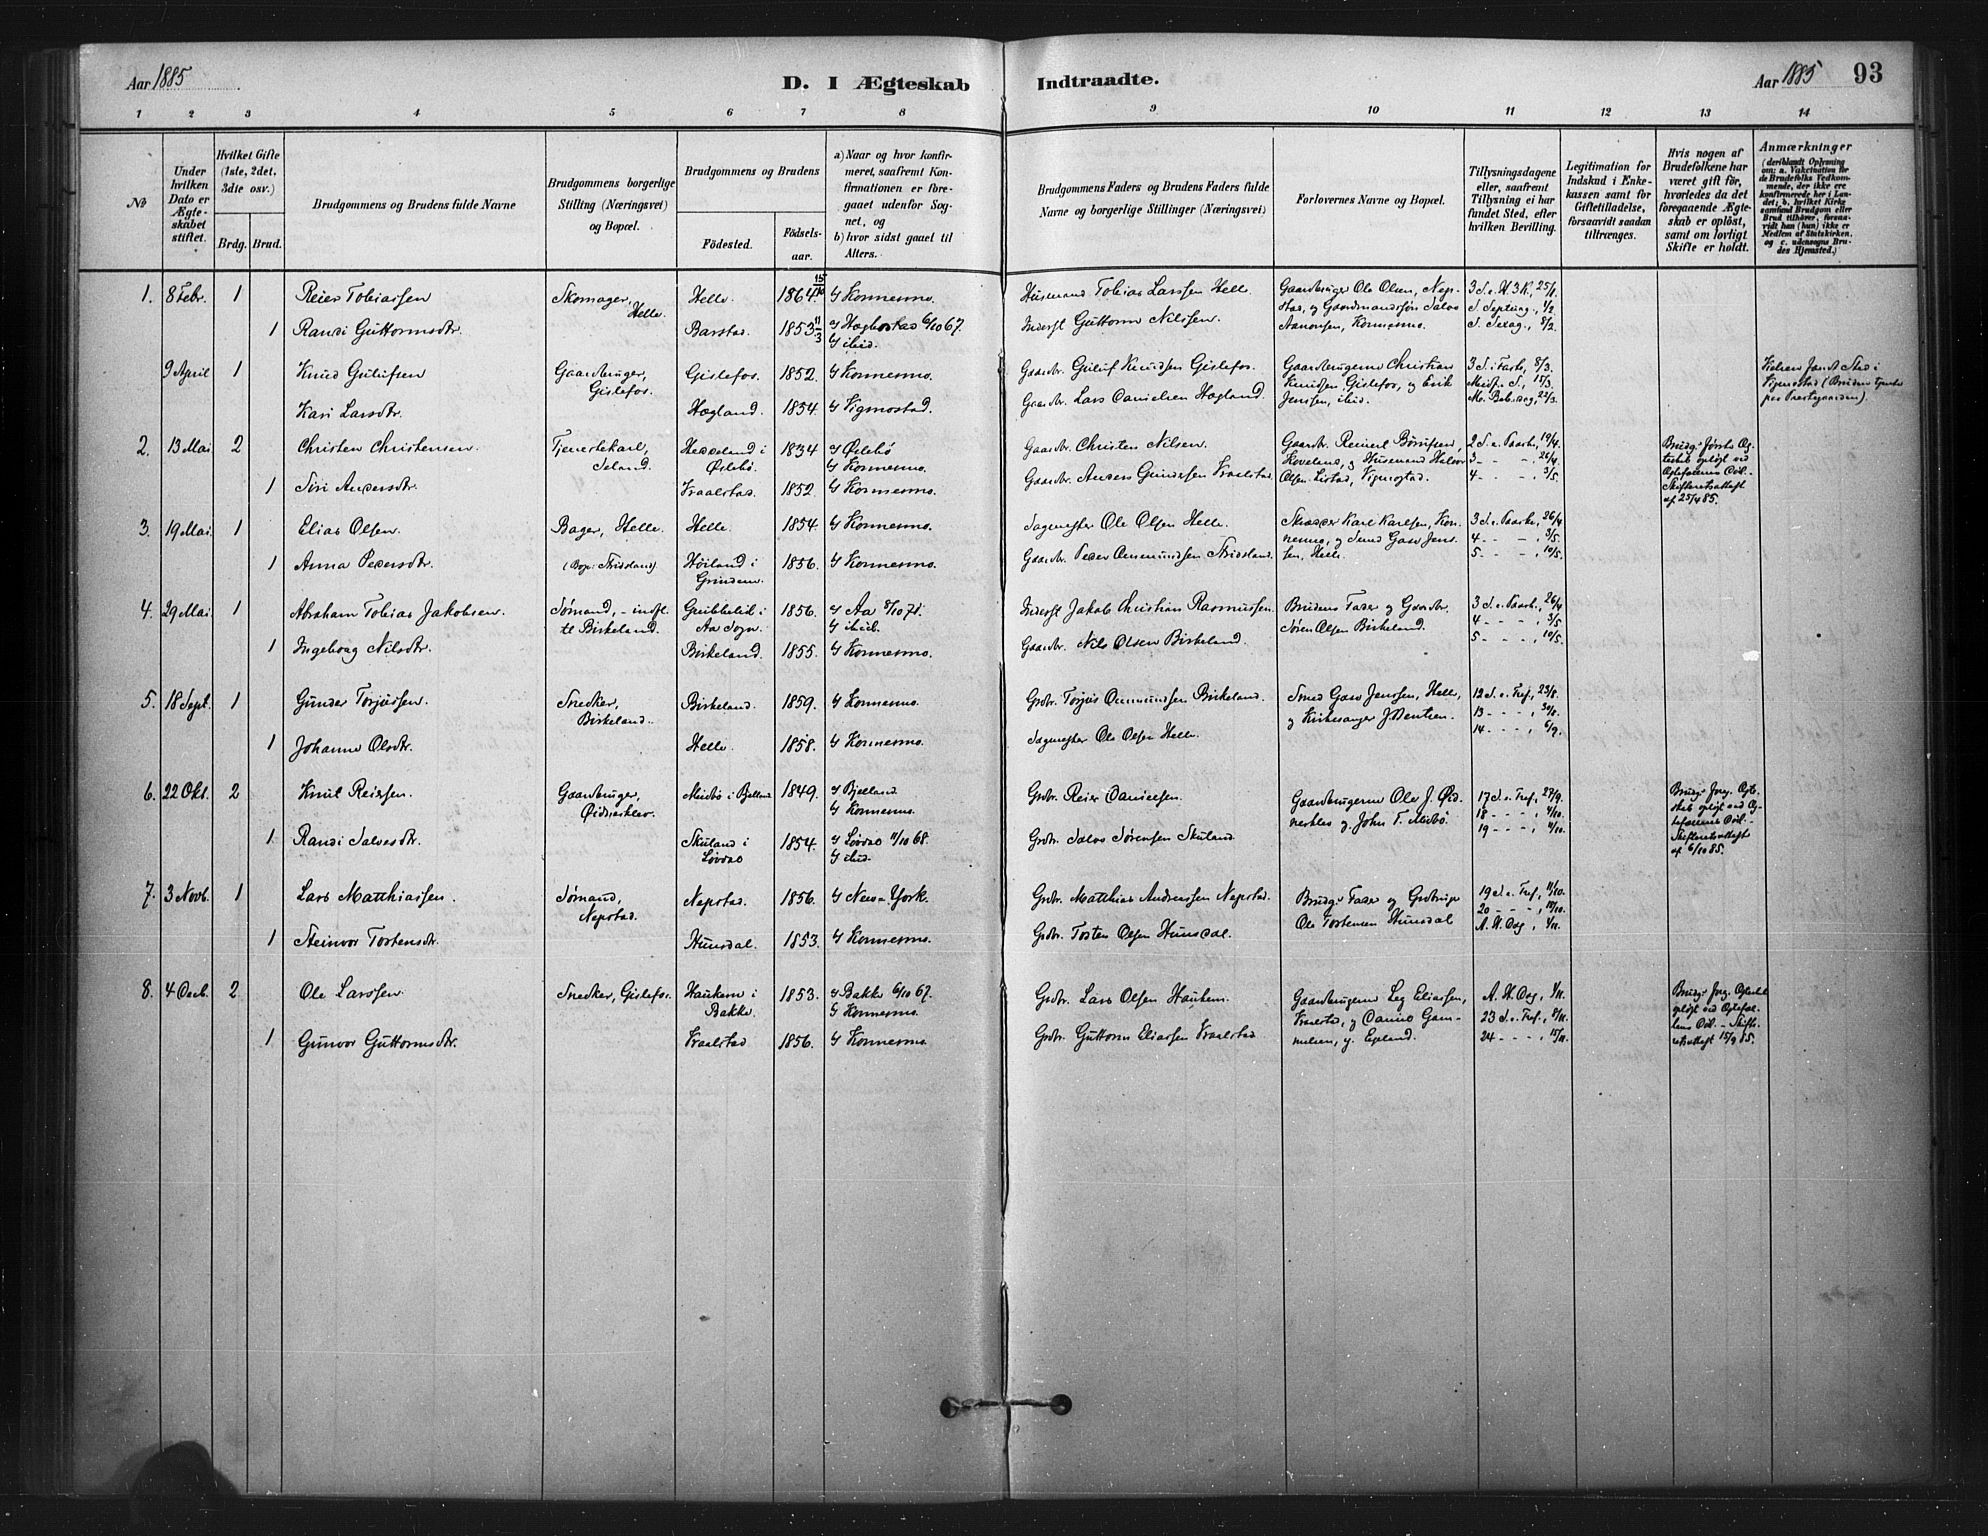 Aar 1885
D. I Ægteskab Indtraadte.
Aar 1885 93
1 2 3 4 5 6 7 8 9 10 11 12 13 14
No
Under hvilken Dato er Ægteskabet stiftet.
Hvilket Gifte (1ste, 2det, 3die osv.)
Brdg. Brud.
Brudgommens og Brudens fulde Navne
Brudgommens borgerlige Stilling (Næringsvei) og Bopæl.
Brudgommens og Brudens
Fødested. Fødsels-aar.
a) Naar og hvor konfirmeret, saafremt Konfirmationen er foregaaet udenfor Sognet, og
b) hvor sidst gaaet til Alters.
Brudgommens Faders og Brudens Faders fulde Navne og borgerlige Stillinger (Næringsvei)
Forlovernes Navne og Bopæl.
Tillysningsdagene eller, saafremt Tillysning ei har fundet Sted, efter hvilken Bevilling.
Legitimation for Indskud i Enkekassen samt for Giftetilladelse, forsaavidt saadan tiltrænges.
Hvis nogen af Brudefolkene har været gift før, hvorledes da det foregaaende Ægteskab er opløst, samt om lovligt Skifte er holdt.
Anmærkninger
(deriblandt Oplysning om: a. Vakcination for de Brudefolks Vedkommende, der ikke ere konfirmerede her i Landet; b. hvilket Kirkesamfund Brudgom eller Brud tilhører, forsaavidt han (hun) ikke er Medlem af Statskirken, og c. udensogns Brudes Hjemsted.)
1. 8 Febr. 1 Reier Tobiassen Skomager, Helle. Helle. 1864 15/10 Konnesmo. Husmand Tobias Larssen Helle Gaardbruger Ole Olsen, Nepstad, og Gaardmandssøn Salve Aanonsen, Konnesmo. 3 S. e. H 3 K., 25/1. S. Septuag., 1/2. S. Sexag., 8/2.
1 Randi Guttormsdtr. Barstad. 1853 11/3 Hægbostad 6/10 67. ibid. Inderst Guttorm Nilssen.
9 April 1 Knud Gulufsen Gaardbruger, Gislefos. Gislefos. 1852. Konnesmo. Gaardbr. Guluf Knudsen Gislefos. Gaardbrugerne Christian Knudsen, Gislefos, og Erik Jenssen, ibid. 3 S. i Faste, 8/3. Midf. S., 15/3. M. Bebudsg., 22/3.
Kari Larsdtr. Hægland. 1854. Vigmostad. Gaardbr. Lars Danielsen Hægland.
2. 13 Mai 2 Christen Christensen Tjenestekarl, Øslebø. 1834 Øslebø Konnesmo. Gaardbr. Christen Nilsen. 2 S. e. Paaske, 19/4. 3 - - -, 26/4. 4 - - -, 3/5.
1 Siri Andersdtr. Vraalstad. 1852. Konnesmo. Gaardbr. Anders Gundersen Vraalstad. af 25/4 85.
3. 19 Mai 1 Elias Olsen Bager, Helle. Helle. 1854. Konnesmo. Sagmester Ole Olsen Helle. Skrædder Karl Karlsen, Konnesmo, og Smed Gaso Jenssen, Helle. 3 S. e. Paaske, 26/4. 4 - - -, 3/5. 5 - - -, 10/5.
1 Anna Pedersdtr. Høiland i Grindem. 1856. Konnesmo. Gaardbr. Peder Ommundsen
4. 29 Mai 1 Abraham Tobias Jakobsen. Sømand, - indfl. til Birkeland. Aa Sogn. 1856. Aa 8/10 71. ibid. Inderst Jakob Christian Rasmussen. Brudens Fader og Gaardbr. Søren Olsen Birkeland. 3 S. e. Paaske, 26/4. 4 - - -, 3/5. 5 - - -, 10/5.
1 Ingeborg Nilsdtr. Birkeland. 1855. Konnesmo. Gaardbr. Nils Olsen Birkeland.
5. 18 Sept. 1 Gunder Torjussen. Snedker, Birkeland. Birkeland. 1859. Konnesmo. Grdbr. Torjus Ommundsen Birkeland. Smed Gaso Jenssen, Helle, og Kirkesanger J. Bentsen. 12 S. e. Tref., 23/8. 13 - - -, 30/8. 14 - - -, 6/9.
1 Johanne Olsdtr. Helle. 1858. Konnesmo. Sagmester Ole Olsen Helle.
6. 22 Okt. 2 Knut Reiersen. Gaardbruger, Bjelland 1849. Bjelland Konnesmo. Grdbr. Reier Danielsen. Gaardbrugerne Ole J. og John T. 17 S. e. Tref., 27/9. 18 - - -, 4/10. 19 - - -, 11/10.
1 Randi Salvesdtr. Skuland i Løvdal 1854. Løvdal 11/10 68. ibid. Grdbr. Salve Sørensen Skuland. af 6/10 85.
7. 3 Novb. 1 Lars Matthiassen. Sømand, Nepstad. Nepstad. 1856. New-York. Grdbr. Matthias Andreassen Nepstad. Brudgs Fader og Grdbruger Ole Tostensen Hunsdal 19 S. e. Tref., 11/10. 20 - - -, 18/10. A. H. Dag, 1/11.
1 Steinvor Tostensdtr. Hunsdal. 1853. Konnesmo. Grdbr. Tosten Olsen Hunsdal.
8. 4 Decb. 2 Ole Larssen. Snedker, Gislefos. Haukem i Bakke. 1853. Bakke 6/10 67. Konnesmo. Grdbr. Lars Olsen Haukem. Gaardbrugerne Leg Eliassen, Vraalstad, og A. H. Dag, 1/11. 23 S. e. Tref., 8/11. 24 - - -, 15/11. 15/9 85.
1 Gunvor Guttormsdtr. Vraalstad 1856. Konnesmo. Grdbr. Guttorm Eliassen Vraalstad.